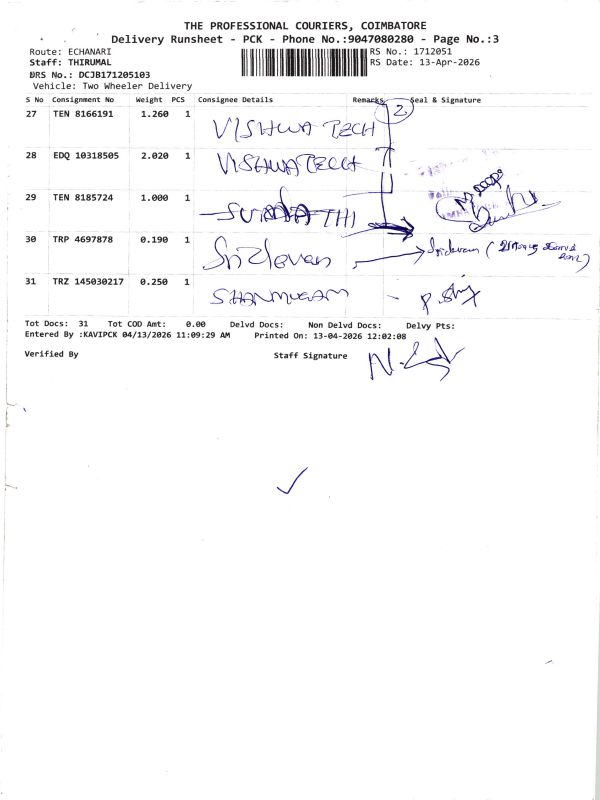 THE PROFESSIONAL COURIERS, COIMBATORE
Delivery Runsheet - PCK - Phone No.:9047080280 - Page No.:3
Route: ECHANARI RS No.: 1712051
Staff: THIRUMAL RS Date: 13-Apr-2026
DRS No.: DCJB171205103
Vehicle: Two Wheeler Delivery
S No Consignment No Weight PCS Consignee Details Remarks Seal & Signature
2
27 TEN 8166191 1.260 1 VISHWA TECH
28 EDQ 10318505 2.020 1 VISHWATECH
29 TEN 8185724 1.000 1
30 TRP 4697878 0.190 1 Sridevan Sridevan
31 TRZ 145030217 0.250 1 SHANMUGAM -
Tot Docs: 31 Tot COD Amt: 0.00 Delvd Docs: Non Delvd Docs: Delvy Pts:
Entered By :KAVIPCK 04/13/2026 11:09:29 AM Printed On: 13-04-2026 12:02:08
Verified By Staff Signature